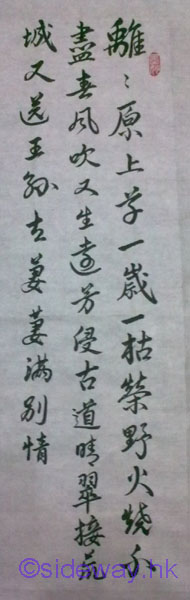 離〻原上草一歲一枯榮野火燒不
盡春風吹又生遠芳侵古道晴翠接荒
城又送王孫去萋萋滿別情
©sideway.hk